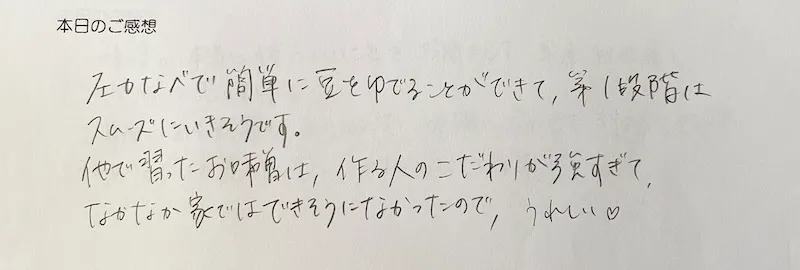 本日のご感想
圧力なべで簡単に豆をゆでることができて、第1段階は
スムーズにいきそうです。
他で習ったお味噌は、作る人のこだわりが強すぎて、
なかなか家ではできそうになかったので、うれしい♡